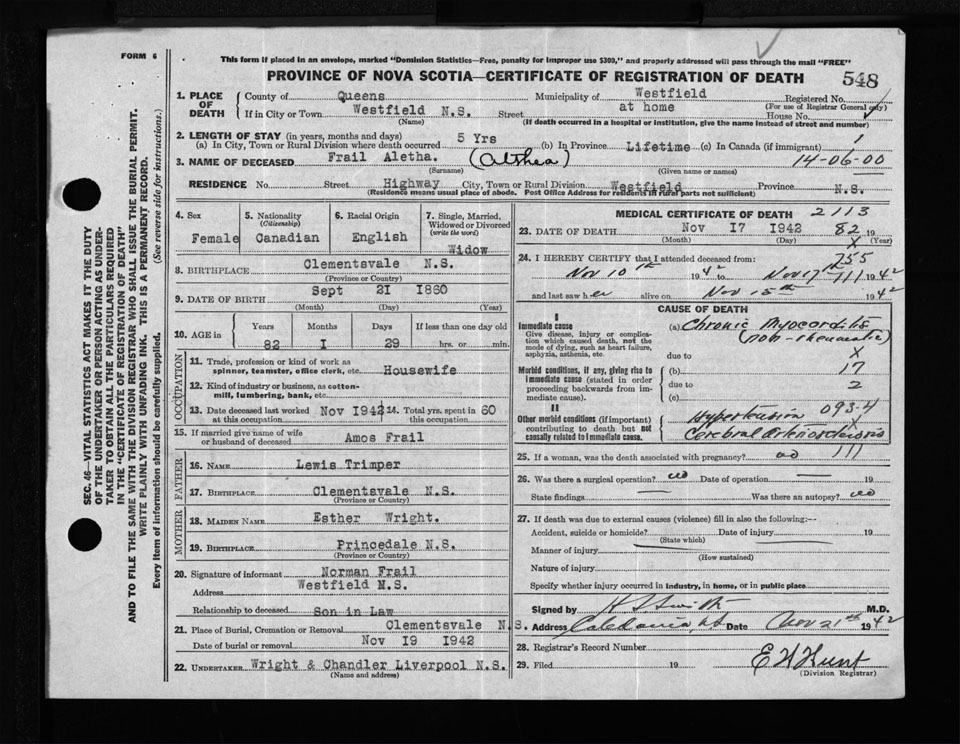 FORM 6
This form if placed in an envelope, marked "Dominion Statistics—Free, penalty for improper use $300," and properly addressed will pass through the mail "FREE"
PROVINCE OF NOVA SCOTIA—CERTIFICATE OF REGISTRATION OF DEATH
548
1. PLACE OF DEATH
County of Queens Municipality of Westfield Registered No.
(For use of Registrar General only)
If in City or Town Westfield N.S. Street at home House No.
(Name) (If death occurred in a hospital or institution, give the name instead of street and number)
2. LENGTH OF STAY (in years, months and days)
(a) In City, Town or Rural Division where death occurred 5 Yrs (b) In Province Lifetime (c) In Canada (if immigrant) 1
3. NAME OF DECEASED Frail Aletha. (Althea) 14-06-00
(Surname) (Given name or names)
RESIDENCE No. Street Highway City, Town or Rural Division Westfield Province N.S.
(Residence means usual place of abode. Post Office Address for residents in rural parts not sufficient)
4. Sex
Female
5. Nationality
(Citizenship)
Canadian
6. Racial Origin
English
7. Single, Married, Widowed or Divorced
(write the word)
Widow
8. BIRTHPLACE Clementsvale N.S.
(Province or Country)
9. DATE OF BIRTH Sept 21 1860
(Month) (Day) (Year)
10. AGE in
Years Months Days If less than one day old
82 I 29 hrs. or min.
OCCUPATION
11. Trade, profession or kind of work as spinner, teamster, office clerk, etc. Housewife
12. Kind of industry or business, as cotton-mill, lumbering, bank, etc.
13. Date deceased last worked at this occupation Nov 1942
14. Total yrs. spent in this occupation 60
15. If married give name of wife or husband of deceased Amos Frail
FATHER
16. NAME Lewis Trimper
17. BIRTHPLACE Clementsvale N.S.
MOTHER
18. MAIDEN NAME Esther Wright.
19. BIRTHPLACE Princedale N.S.
(Province or Country)
20. Signature of informant Norman Frail
Address Westfield N.S.
Relationship to deceased Son in Law
21. Place of Burial, Cremation or Removal Clementsvale N.S.
Date of burial or removal Nov 19 1942
22. UNDERTAKER Wright & Chandler Liverpool N.S.
(Name and address)
MEDICAL CERTIFICATE OF DEATH 2113
23. DATE OF DEATH Nov 17 1942 82 19
(Month) (Day) X (Year)
24. I HEREBY CERTIFY that I attended deceased from: 755
Nov 10th 1942 to Nov 17th 111 1942
and last saw her alive on Nov 15th 1942
CAUSE OF DEATH
I
Immediate cause
Give disease, injury or complication which caused death, not the mode of dying, such as heart failure, asphyxia, asthenia, etc.
(a) Chronic Myocarditis
(non-rheumatic)
due to X
Morbid conditions, if any, giving rise to immediate cause (stated in order proceeding backwards from immediate cause).
(b) 17
due to 2
(c)
II
Other morbid conditions (if important) contributing to death but not causally related to immediate cause.
Hypertension 093-4
Cerebral Arteriosclerosis
25. If a woman, was the death associated with pregnancy? no 111
26. Was there a surgical operation? no Date of operation —
State findings — Was there an autopsy? no
27. If death was due to external causes (violence) fill in also the following:—
Accident, suicide or homicide? Date of injury 19
(State which)
Manner of injury
(How sustained)
Nature of injury
Specify whether injury occurred in industry, in home, or in public place
Signed by H S Smith M.D.
Address Caledonia, NS Date Nov 21st 1942
28. Registrar's Record Number
29. Filed 19 E W Hunt
(Division Registrar)
SEC. 46—VITAL STATISTICS ACT MAKES IT THE DUTY
OF THE UNDERTAKER OR PERSON ACTING AS UNDER-
TAKER TO OBTAIN ALL THE PARTICULARS REQUIRED
IN THE "CERTIFICATE OF REGISTRATION OF DEATH"
AND TO FILE THE SAME WITH THE DIVISION REGISTRAR WHO SHALL ISSUE THE BURIAL PERMIT.
WRITE PLAINLY WITH UNFADING INK. THIS IS A PERMANENT RECORD.
Every item of information should be carefully supplied. (See reverse side for instructions.)